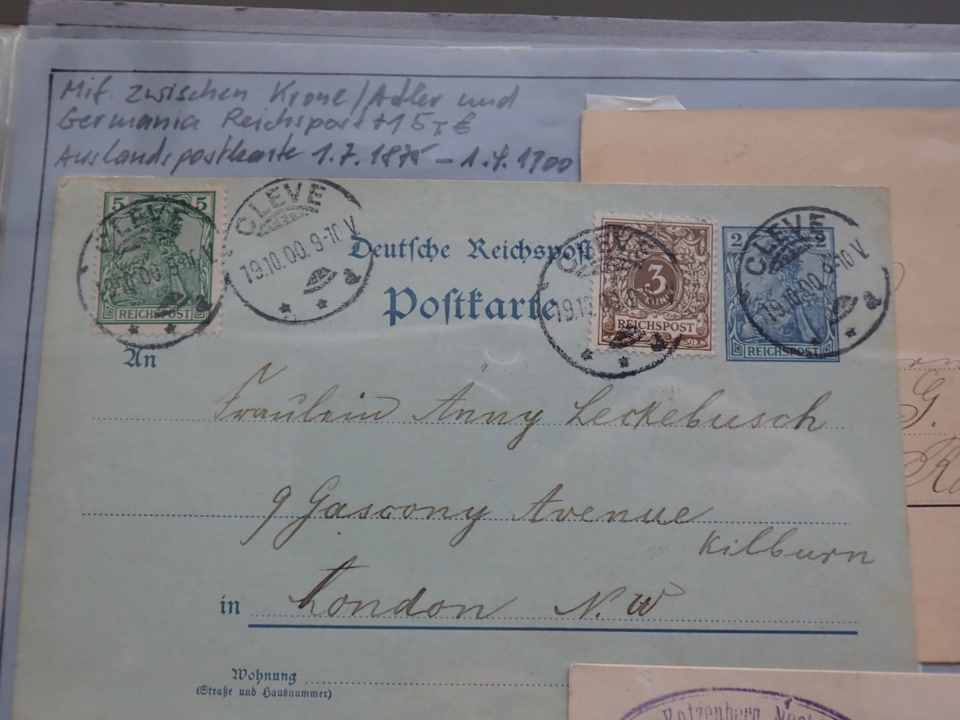 Mif zwischen Krone/Adler und
Germania Reichspost
Auslandspostkarte 1.7.1875 – 1.4.1900
5 5
REICHSPOST
CLEVE
19.10.00.9-10 V.
* * a
CLEVE
19.10.00.9-10 V.
* * a
Deutsche Reichspost
Postkarte
3
REICHSPOST
CLEVE
19.10
* *
2 2
REICHSPOST
CLEVE
19.10.00.9-10 V.
* * a
An
Fräulein Anny Leckebusch
9 Gascony Avenue
Kilburn
in London N.W
Wohnung
(Straße und Hausnummer)
G.